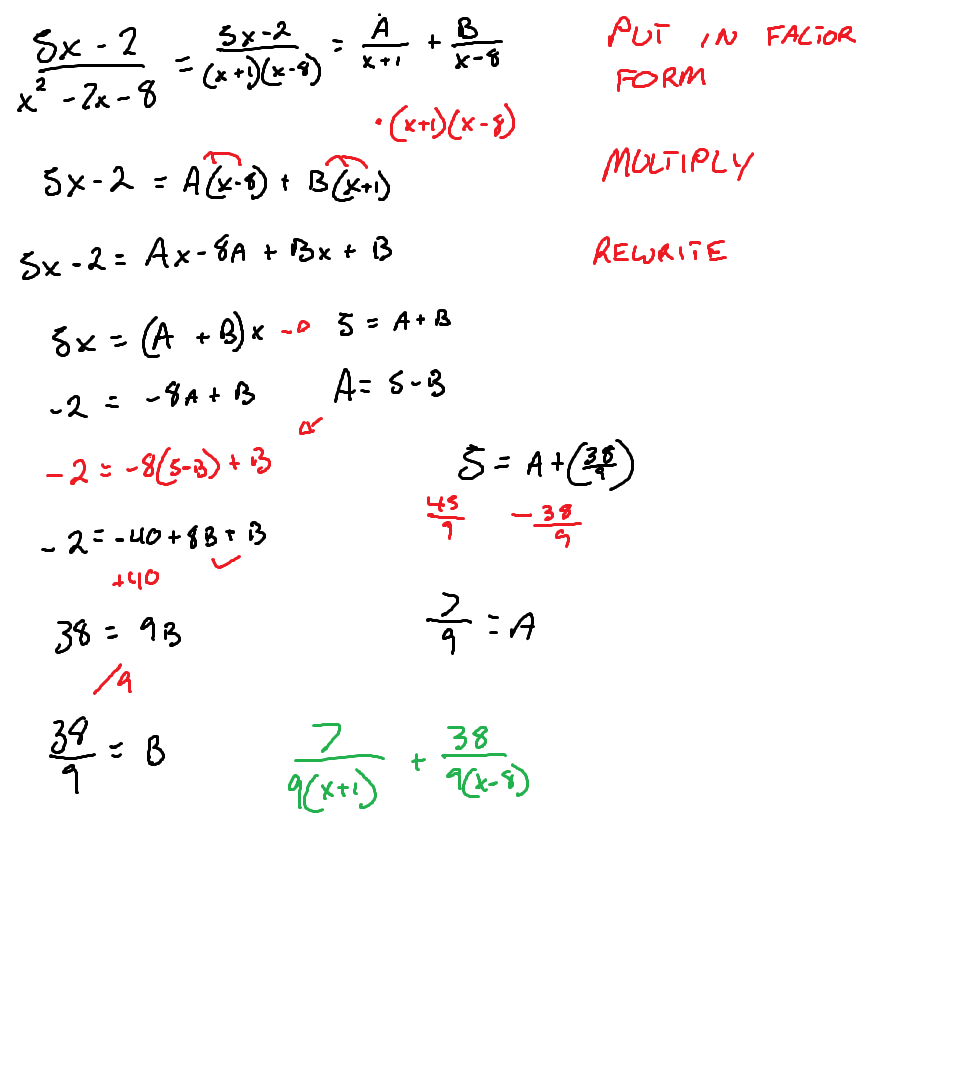 5x - 2 / x² - 7x - 8 = 5x - 2 / (x+1)(x-8) = A / x+1 + B / x-8 PUT IN FACTOR
FORM
• (x+1)(x-8)
5x - 2 = A(x-8) + B(x+1) MULTIPLY
5x - 2 = Ax - 8A + Bx + B REWRITE
5x = (A + B)x → 5 = A + B
-2 = -8A + B A = 5 - B
-2 = -8(5-B) + B
-2 = -40 + 8B + B ✓
+40
38 = 9B
/9
38/9 = B
5 = A + (38/9)
45/9 - 38/9
7/9 = A
7 / 9(x+1) + 38 / 9(x-8)